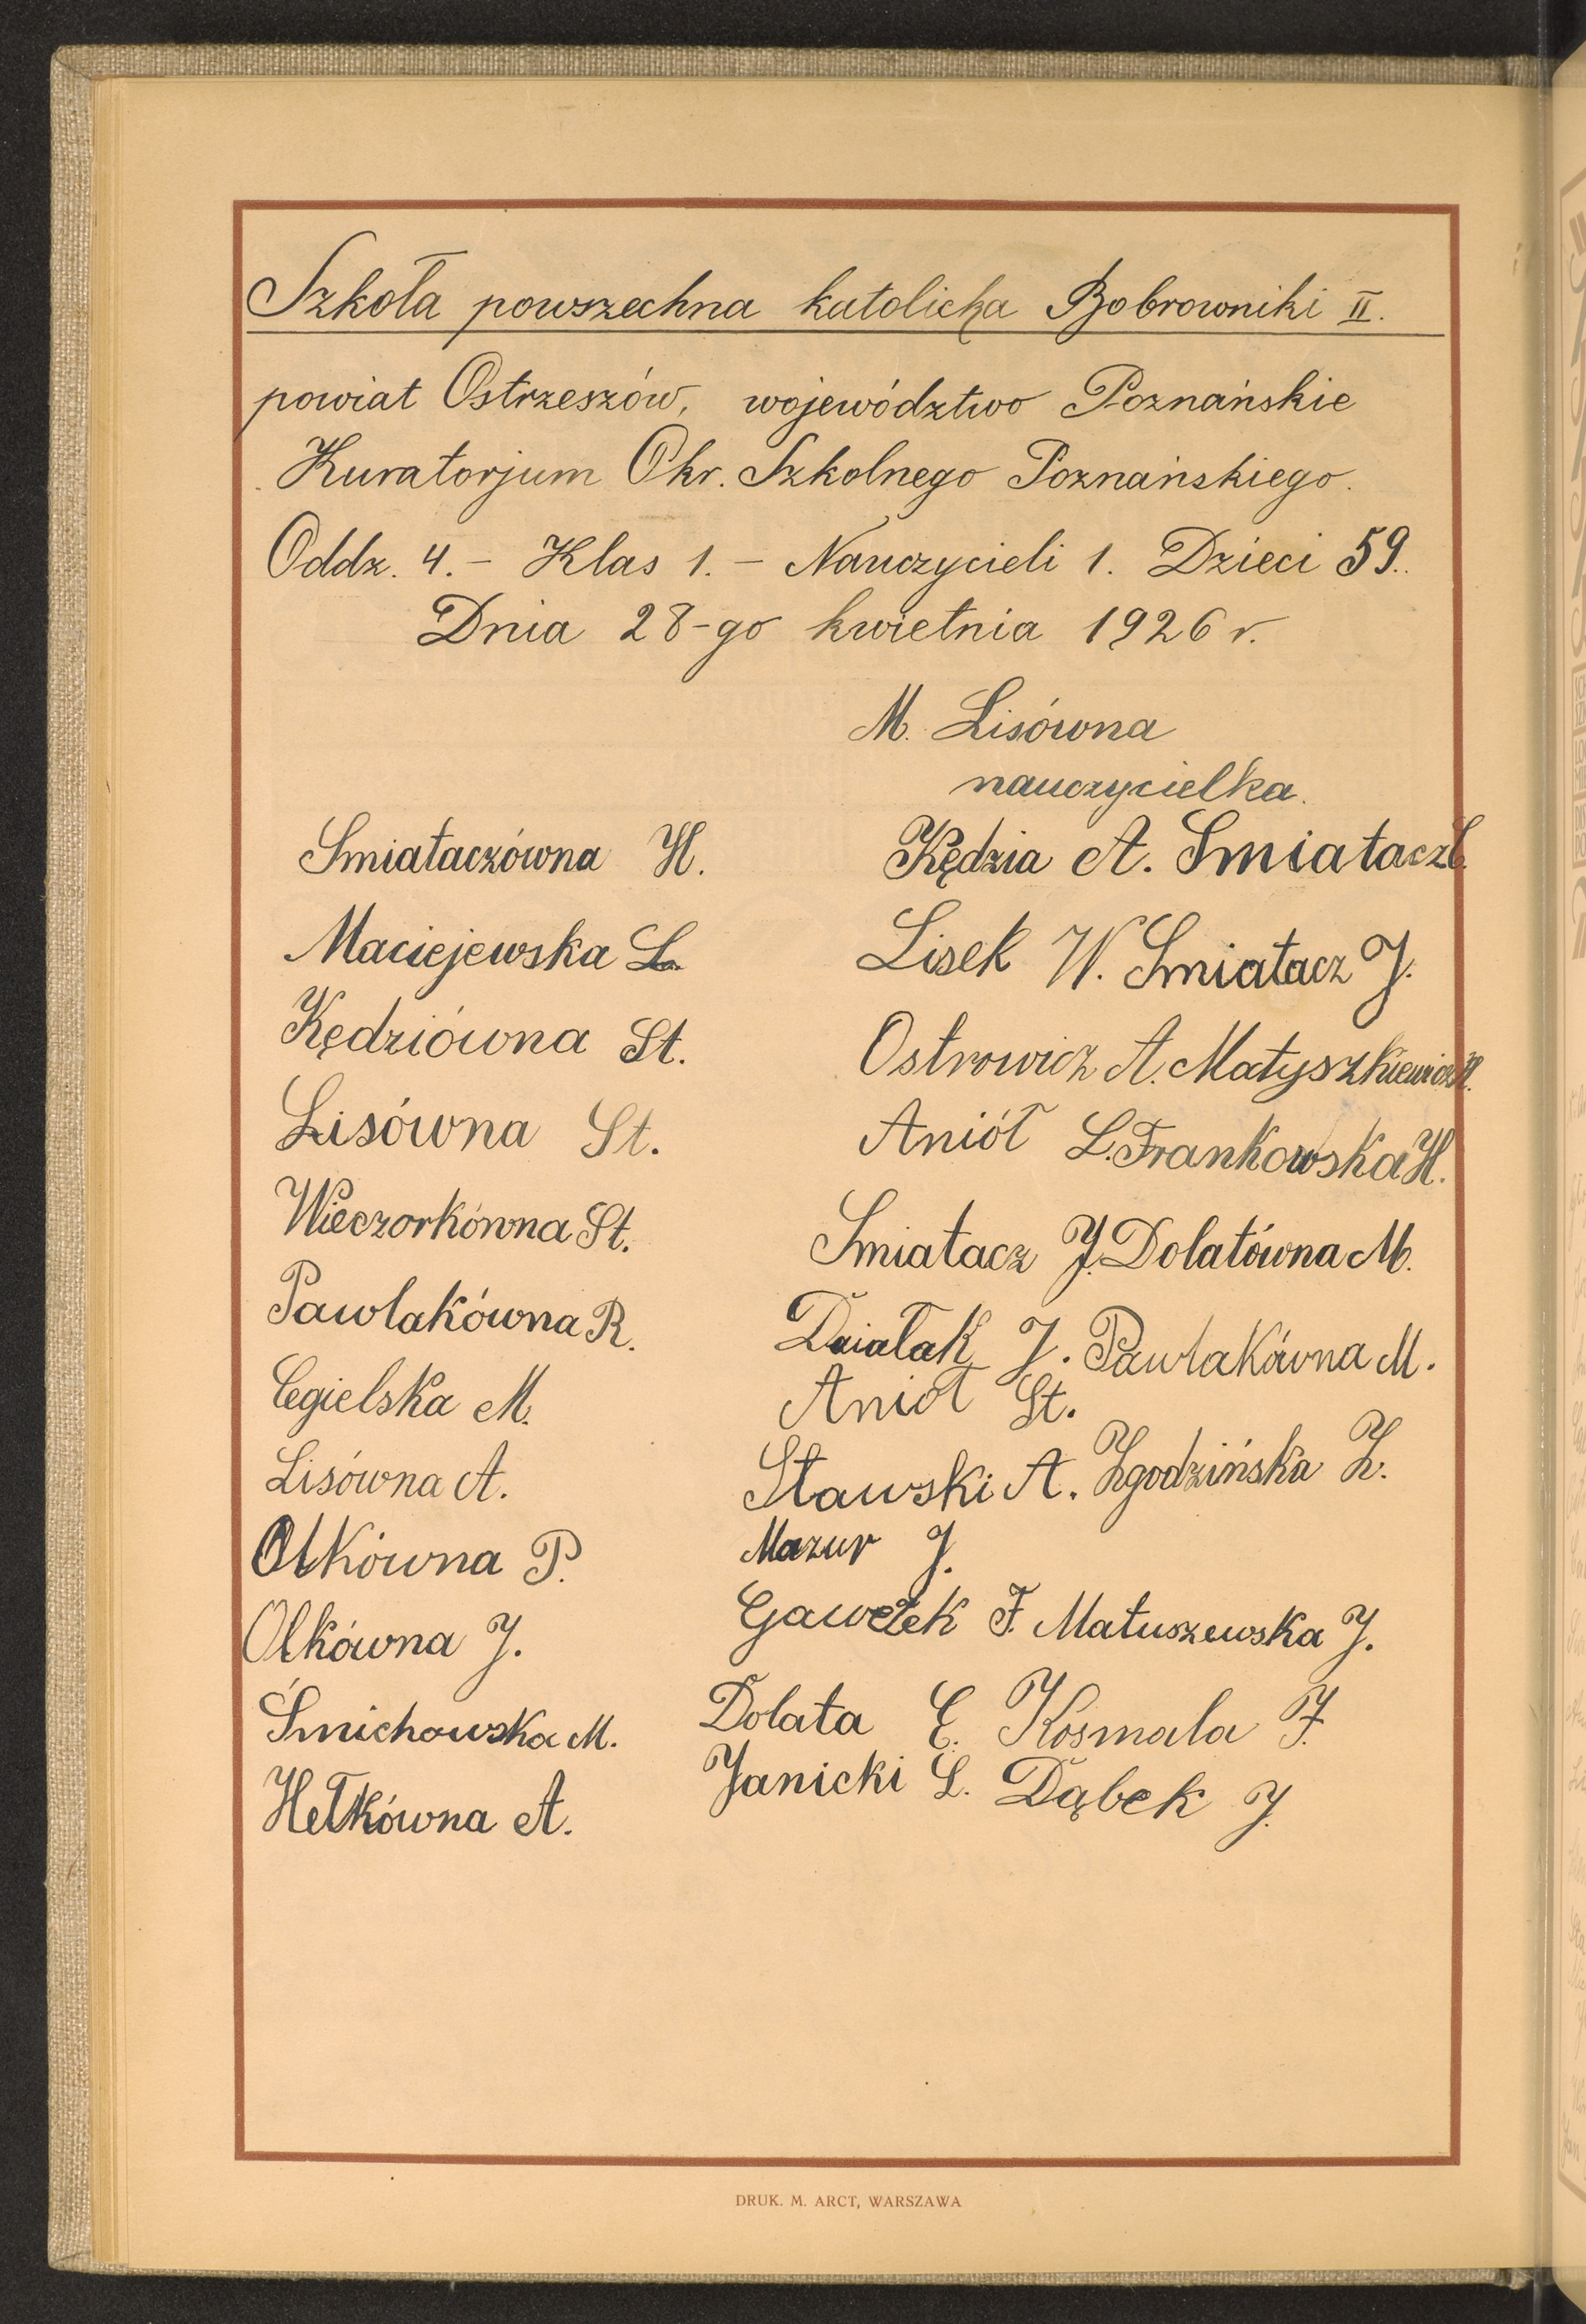 Szkoła powszechna katolicka Bobrowniki II.
powiat Ostrzeszów, województwo Poznańskie
Kuratorjum Okr. Szkolnego Poznańskiego.
Oddz. 4. – Klas 1. – Nauczycieli 1. Dzieci 59.
Dnia 28-go kwietnia 1926 r.
M. Lisówna
nauczycielka.
Smiataczówna H.
Maciejewska L.
Kędziówna St.
Lisówna St.
Wieczorkówna St.
Pawlakówna R.
Cegielska M.
Lisówna A.
Olkówna P.
Olkówna J.
Śmichowska M.
Hełkówna A.
Kędzia A. Smiatacz
Lisek W. Smiatacz J.
Ostrowicz A. Matyszkiewicz H.
Aniół L. Frankowska H.
Smiatacz J. Dolatówna M.
J. Pawlakówna M.
Anioł St.
Stawski A. Zgodzińska Z.
Mazur J.
Gawełek F. Matuszewska J.
Dolata C. Kosmala F.
Janicki L. Dąbek J.
DRUK. M. ARCT, WARSZAWA